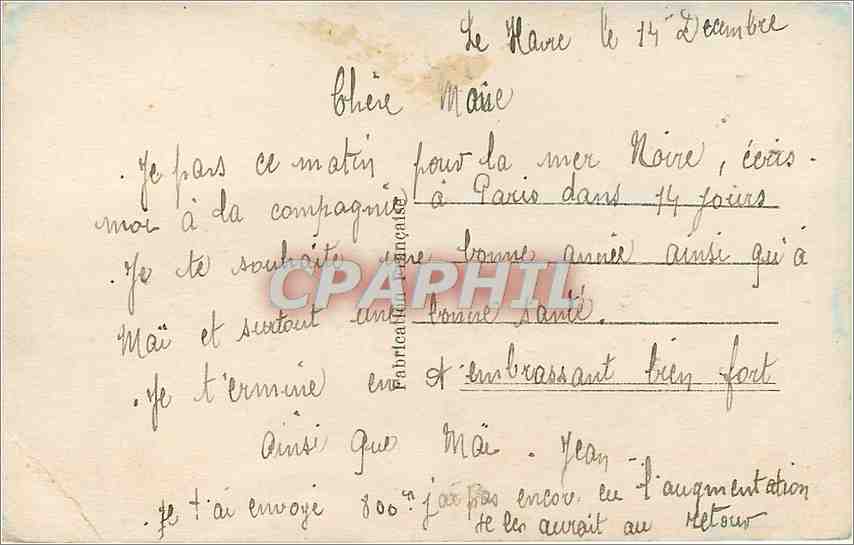 Le Havre le 14 Decembre
Chère Maïe
. Je pars ce matin pour la mer Noire, écris-
moi à la compagnie à Paris dans 14 jours
. Je te souhaite une bonne année ainsi qu'à
Maï et surtout une bonne santé.
. Je t'ermine en t'embrassant bien fort
ainsi que Maï. Jean.
. Je t'ai envoyé 800 fr j'ai pas encor eu l'augmentation
je les aurait au retour
Fabrication Française
CPAPHIL